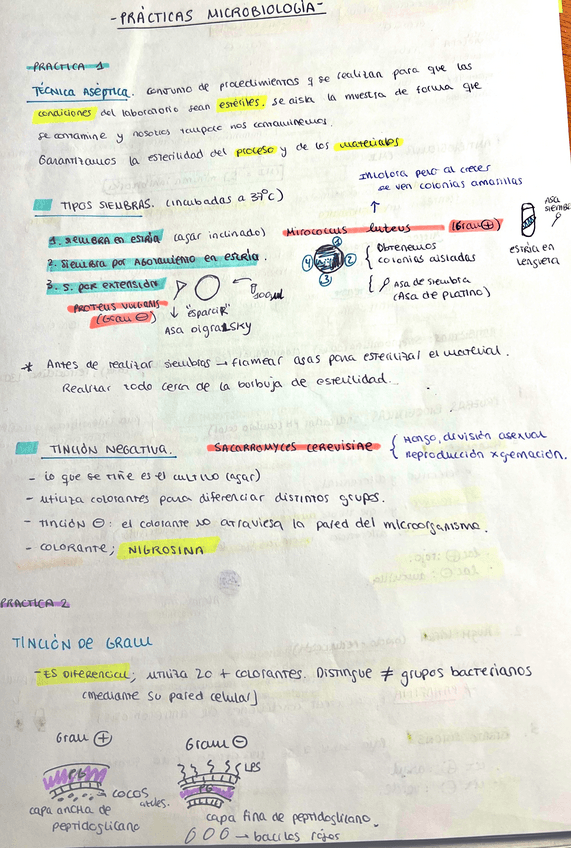 - PRÁCTICAS MICROBIOLOGÍA -
PRACTICA 1
TÉCNICA ASÉPTICA. conjunto de procedimientos q se realizan para que las
condiciones del laboratorio sean estériles. se aisla la muestra de forma que
se contamine y nosotros tampoco nos contaminemos.
Garantizamos la esterilidad del proceso y de los materiales
TIPOS SIEMBRAS. (incubadas a 37ºC)
Incolora pero al crecer
se ven colonias amarillas
1. SIEMBRA EN ESTRÍA (agar inclinado) Mirococus luteus (Gram +)
asa
siembra
estría en
lengüeta
2. Siembra por Agotamiento en estría.
1 2 3 4
Obtenemos
colonias aisladas
Asa de siembra
(Asa de platino)
3. S. por extensión
300μl
PROTEUS VULGARIS
(Gram -)
↓ "esparcir"
Asa digralsky
* Antes de realizar siembras → flamear asas para esterilizar el material.
Realizar todo cerca de la borbuja de esterilidad.
TINCIÓN NEGATIVA. SACARROMYCES CEREVISIAE
Hongo, división asexual
Reproducción x gemación.
- lo que se tiñe es el cultivo (agar)
- utiliza colorantes para diferenciar distintos grupos.
- TINCIÓN ⊖: el colorante no atraviesa la pared del microorganismo.
- COLORANTE; NIGROSINA
PRACTICA 2
TINCIÓN DE GRAM
- ES DIFERENCIAL; utiliza 2 o + colorantes. Distingue ≠ grupos bacterianos
(mediante su pared celular]
Gram ⊕
Gram ⊖
LPS
PG
PG
cocos
capa ancha de
peptidoglicano
capa fina de peptidoglicano.
→ bacilos rojos